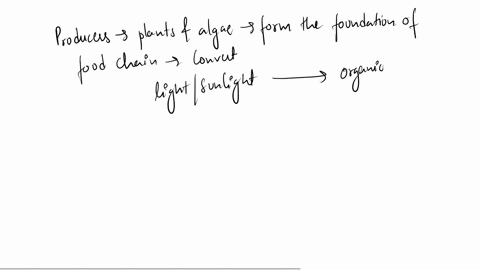 Producers → plants & algae → form the foundation of
food chain → Convert
light/sunlight → organic